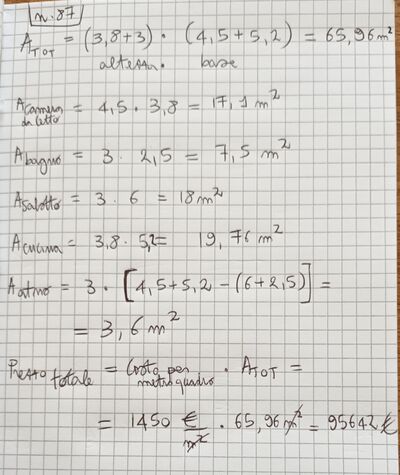 n. 87
A TOT = (3,8+3) · (4,5+5,2) = 65,96 m²
altezza · base
A camera da letto = 4,5 · 3,8 = 17,1 m²
A bagno = 3 · 2,5 = 7,5 m²
A salotto = 3 · 6 = 18 m²
A cucina = 3,8 · 5,2 = 19,76 m²
A atrio = 3 · [4,5+5,2 - (6+2,5)] =
= 3,6 m²
Prezzo totale = Costo per metro quadro · A TOT =
= 1450 €/m² · 65,96 m² = 95642 €